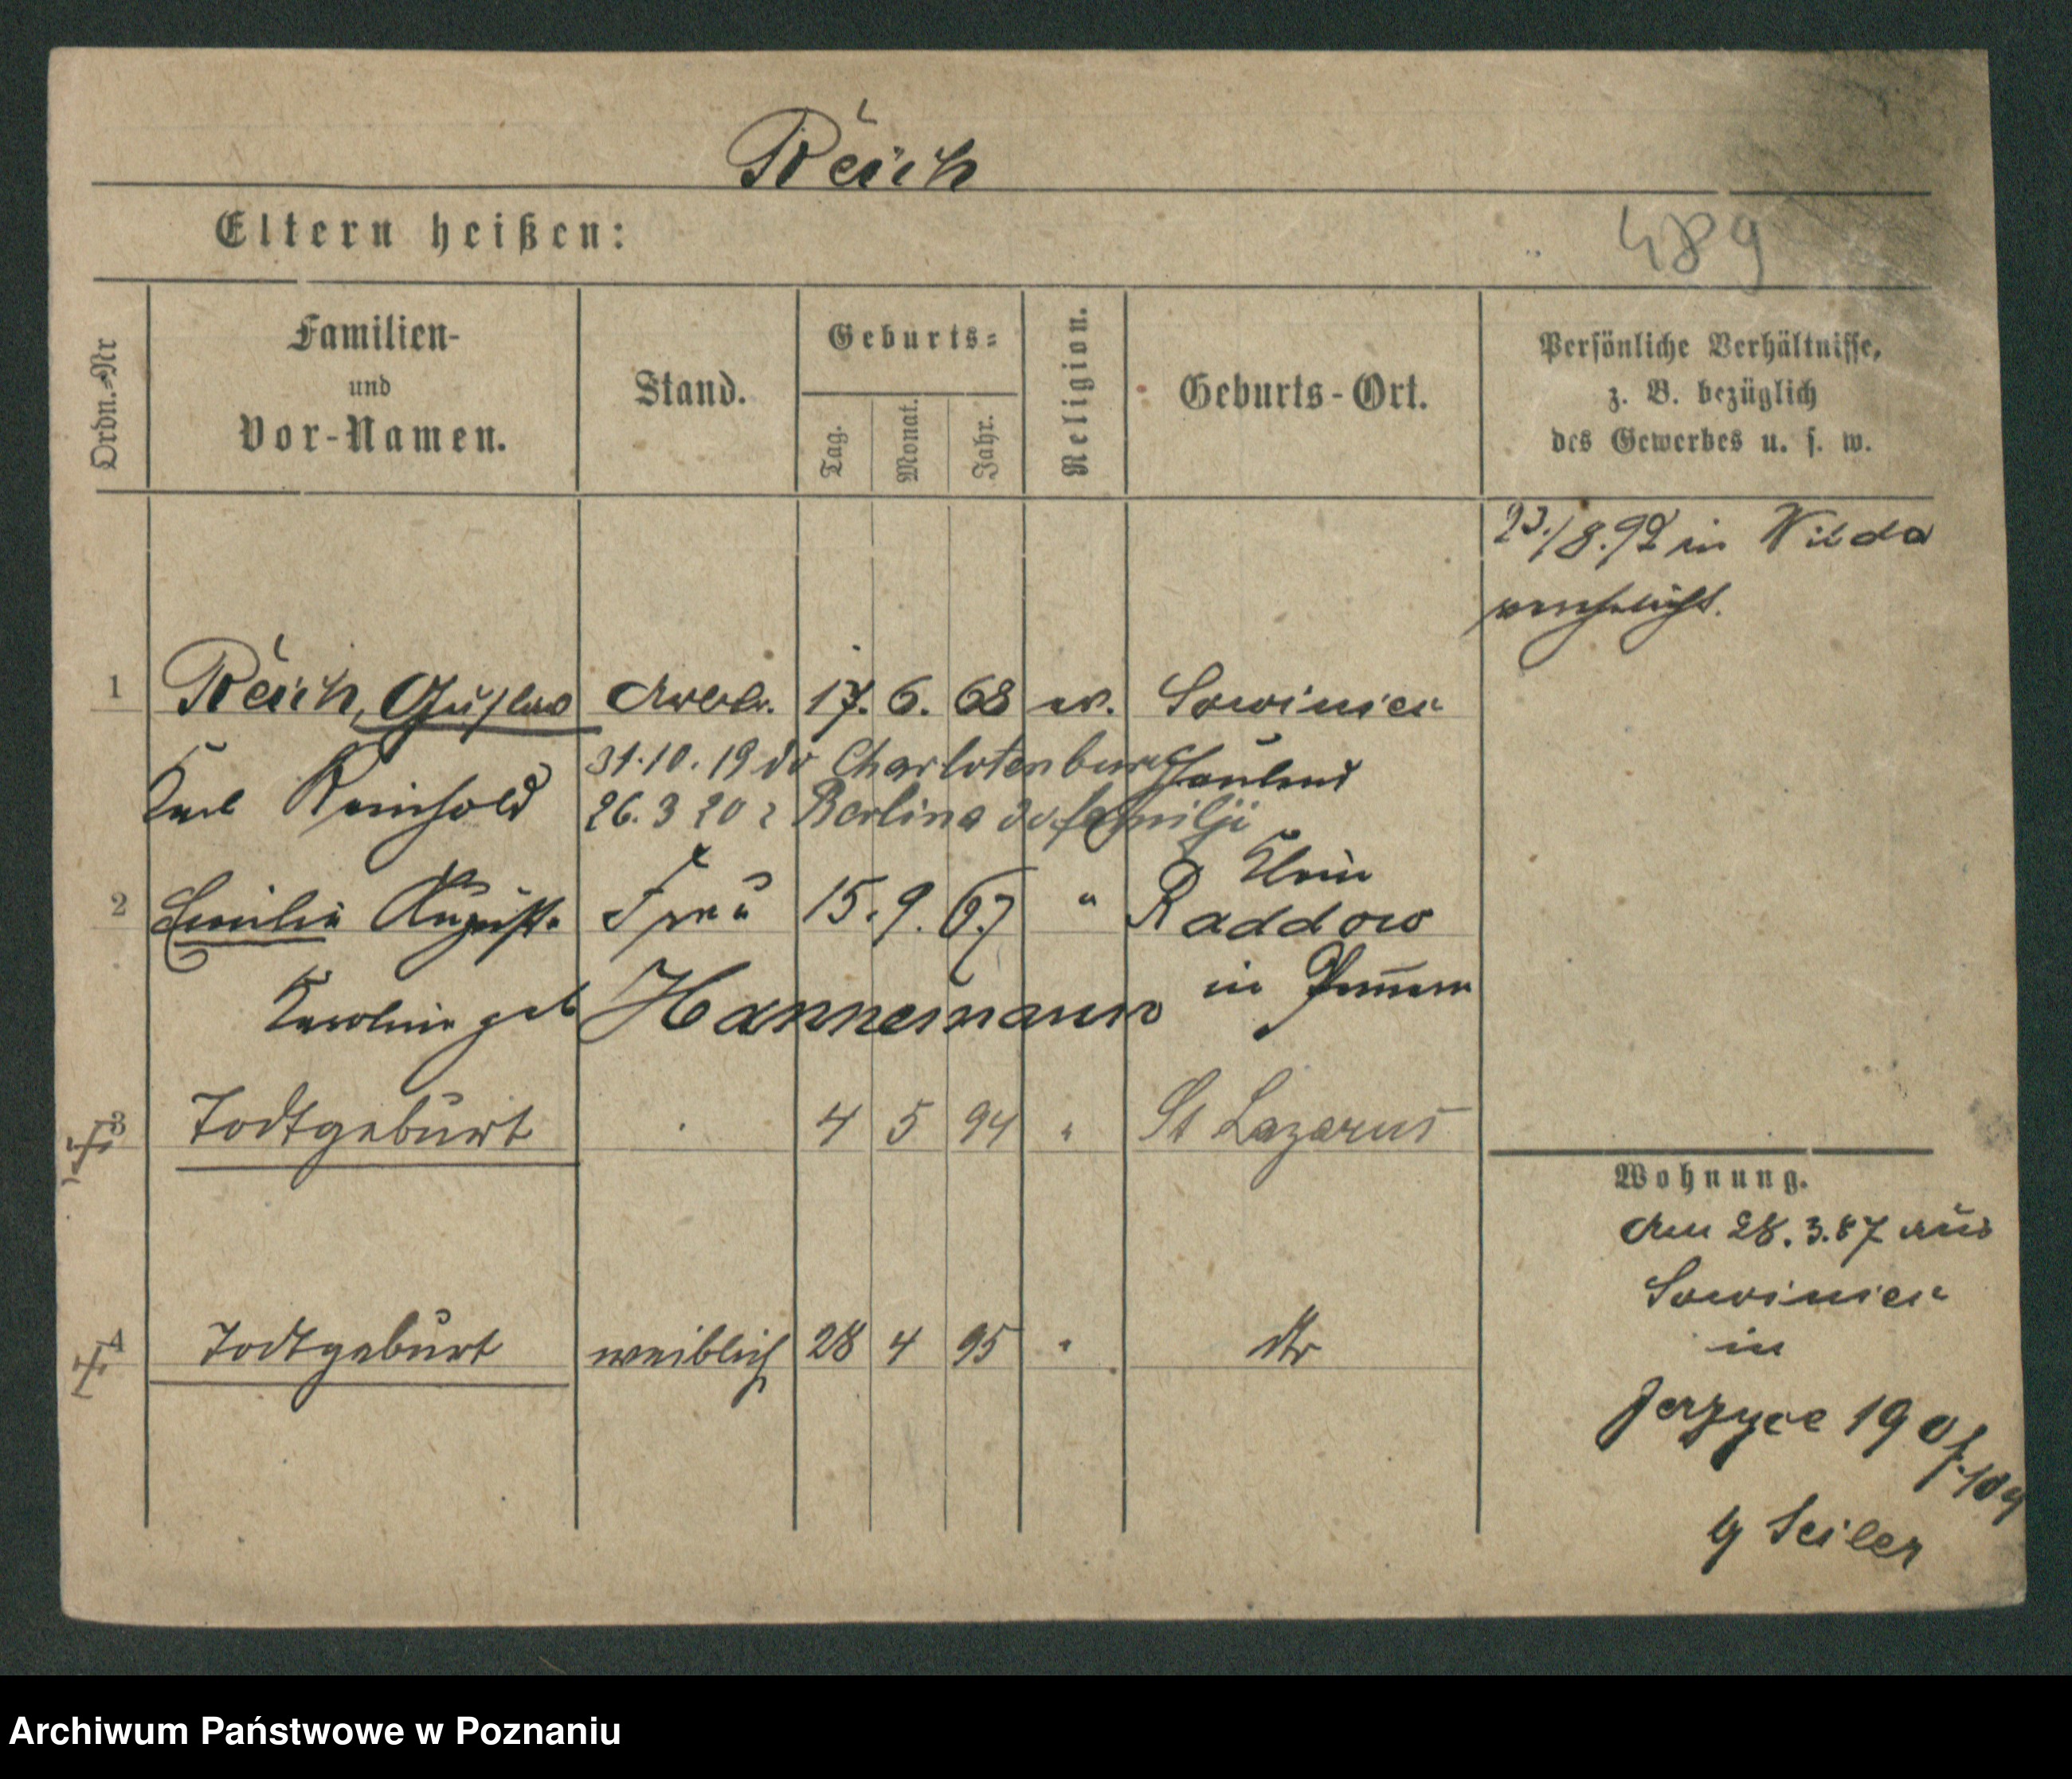 Reich
Eltern heißen:
489
Ordn.-Nr
Familien-
und
Vor-Namen.
Stand.
Geburts-
Tag.
Monat.
Jahr.
Religion.
Geburts-Ort.
Persönliche Verhältnisse,
z. B. bezüglich
des Gewerbes u. s. w.
23./8.92 in Wilda
verehelicht.
1 Reich, Gustav Arbtr. 17. 6. 68 ev. Sowiniec
Karl Reinhold
31.10.19 do Charlotenburg
Hauland
26.3 20 z Berlina do familji
2 Emilie Auguste Frau 15. 9. 67 " Klein
Raddow
in Pommern
Karoline geb Hannemann
3 Todtgeburt 4 5 94 " St Lazarus
4 Todtgeburt weiblich 28 4 95 " dto
Wohnung.
Am 28. 3. 87 aus
Sowiniec
in
Jerzyce 190
Seiler
Archiwum Państwowe w Poznaniu